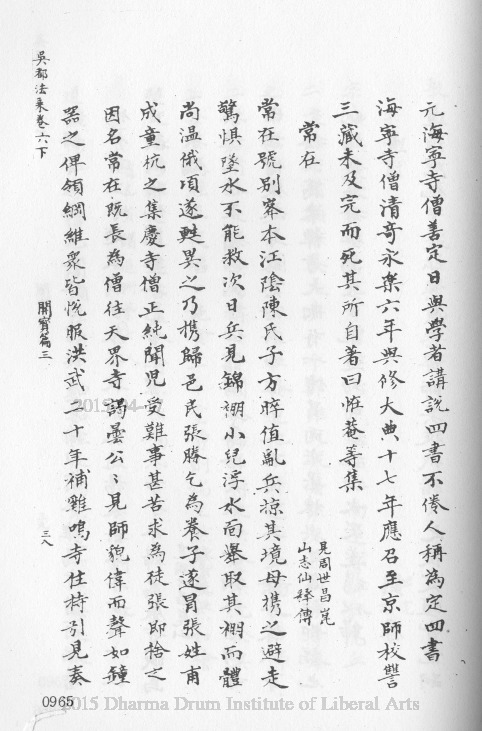 元海寧寺僧善定日與學者講說四書不倦人稱為定四書
海寧寺僧清奇永樂六年與修大典十七年應召至京師校讐
三藏未及完而死其所自著曰恠菴等集
見周世昌崑
山志仙釋傳
常在
常在號別峯本江陰陳氏子方晬值亂兵掠其境母携之避走
驚惧墜水不能救次日兵見錦綳小兒浮水面舉取其綳而體
尚温俄頃遂甦異之乃携歸邑民張勝乞為養子遂冒張姓甫
成童杭之集慶寺僧正純聞兒受難事甚苦求為徒張即捨之
因名常在既長為僧往天界寺謁曇公〻見師貌偉而聲如鐘
器之俾領綱維衆皆悅服洪武二十年補雞鳴寺住持引見奏
吳都法乘卷六下
開寶篇三
三八
0965
2015-04-
2015 Dharma Drum Institute of Liberal Arts